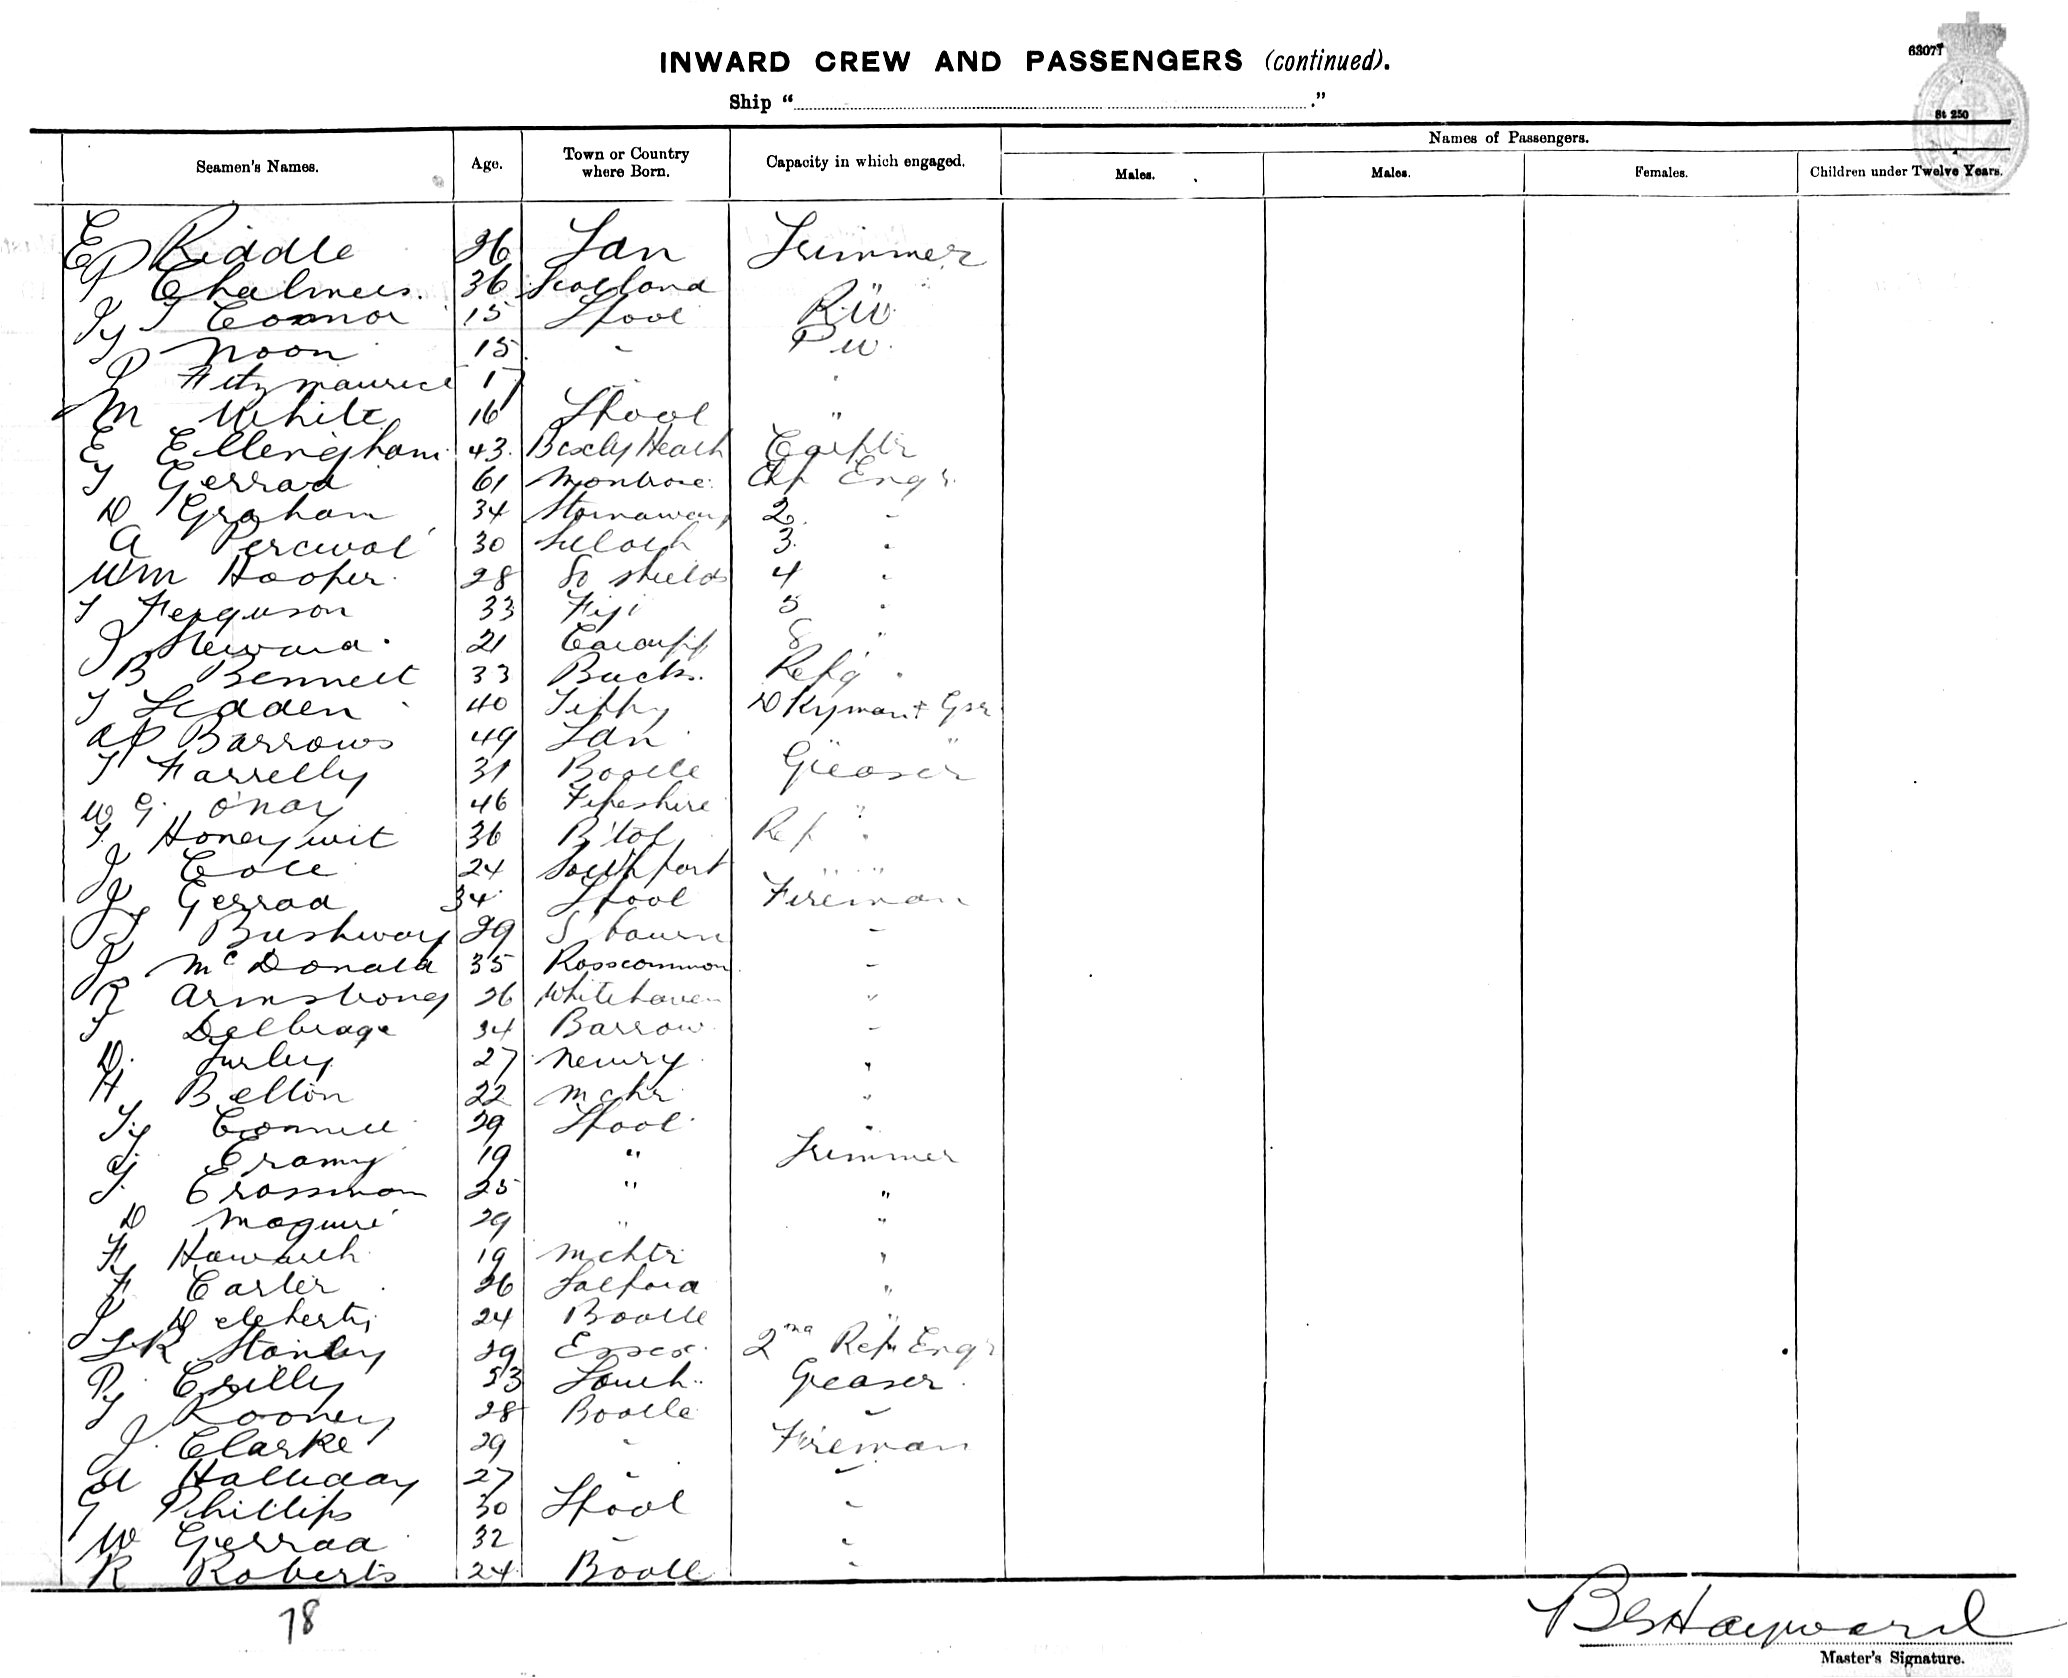 63077
INWARD CREW AND PASSENGERS (continued).
Ship " ."
St 250
Names of Passengers.
Seamen's Names. Age. Town or Country where Born. Capacity in which engaged. Males. Males. Females. Children under Twelve Years.
E Riddle 36 Lan Trimmer
P Chalmers. 36 Scotland "
J Connor 15 Lpool R.W.
Noon 15 " P W.
P Fitzmaurice 17
M White 16 Lpool "
E Ellengham 43. Bexly Heath
Gerrad 61 Montrose. Chf Engr.
D Graham 34 Stornaway 2 "
A Percival 30 3. "
Wm Hooper. 28 So Shields 4 "
T Ferguson 33 Fiji 5 "
J Steward. 21 Cardiff 8 "
B Bennett 33 Bucks. Refg "
T Ledden 40 Tippy D Kyman + Gsr
A P Barrows 49 Lan "
T Farrelly 31 Bootle Greaser
W G 46 Fifeshire "
T. Honeywit 36 B'tol Ref "
J Cole 24 Southport " "
J Gerrad 34 Lpool Fireman
Bushway 29 "
J McDonald 35 Rosscommon "
R Armstrong 26 Whitehaven "
T 34 Barrow "
D. Turley 27 Newry "
H Belton 22 Mchr "
Ty Connell 29 Lpool "
19 " Trimmer
J. Crossman 25 " "
D Maguire 29 " "
F Howarth 19 Mchtr "
F Carter 26 Salford "
J 24 Bootle "
L R Stanley 29 Essex. 2nd Ref Engr
Pj Crilly 53 Louth. Greaser.
T Rooney 28 Bootle "
J. Clarke 29 " Fireman
Halliday 27 " "
G Phillips 30 Lpool "
W Gerrad 32 " "
R Roberts 24 Bootle "
78
Hayward
Master's Signature.